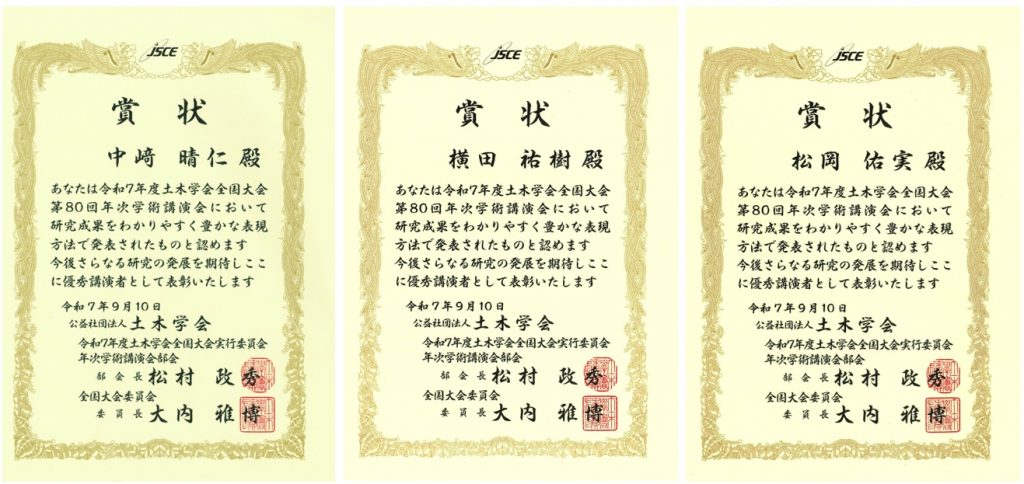 JSCE
賞状
中﨑 晴仁 殿
あなたは令和7年度土木学会全国大会
第80回年次学術講演会において
研究成果をわかりやすく豊かな表現
方法で発表されたものと認めます
今後さらなる研究の発展を期待しここ
に優秀講演者として表彰いたします
令和7年9月10日
公益社団法人 土木学会
令和7年度土木学会全国大会実行委員会
年次学術講演会部会
部会長 松村 政秀
全国大会委員会
委員長 大内 雅博
JSCE
賞状
横田 祐樹 殿
あなたは令和7年度土木学会全国大会
第80回年次学術講演会において
研究成果をわかりやすく豊かな表現
方法で発表されたものと認めます
今後さらなる研究の発展を期待しここ
に優秀講演者として表彰いたします
令和7年9月10日
公益社団法人 土木学会
令和7年度土木学会全国大会実行委員会
年次学術講演会部会
部会長 松村 政秀
全国大会委員会
委員長 大内 雅博
JSCE
賞状
松岡 佑実 殿
あなたは令和7年度土木学会全国大会
第80回年次学術講演会において
研究成果をわかりやすく豊かな表現
方法で発表されたものと認めます
今後さらなる研究の発展を期待しここ
に優秀講演者として表彰いたします
令和7年9月10日
公益社団法人 土木学会
令和7年度土木学会全国大会実行委員会
年次学術講演会部会
部会長 松村 政秀
全国大会委員会
委員長 大内 雅博